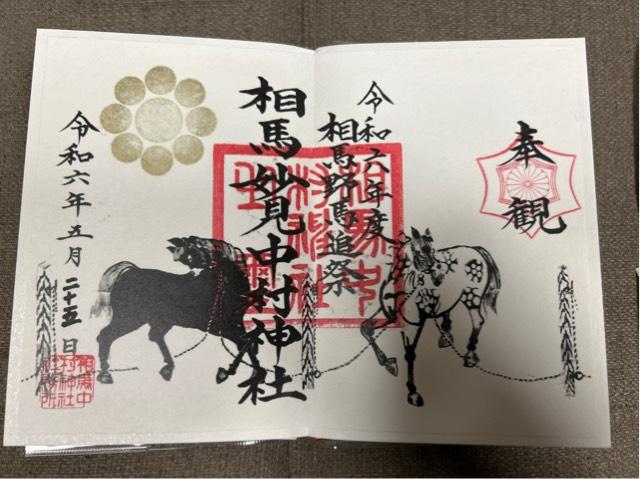 奉觀
令和六年度
相馬野馬追祭
相馬妙見中村神社
令和六年五月二十五日
相馬中
村神社